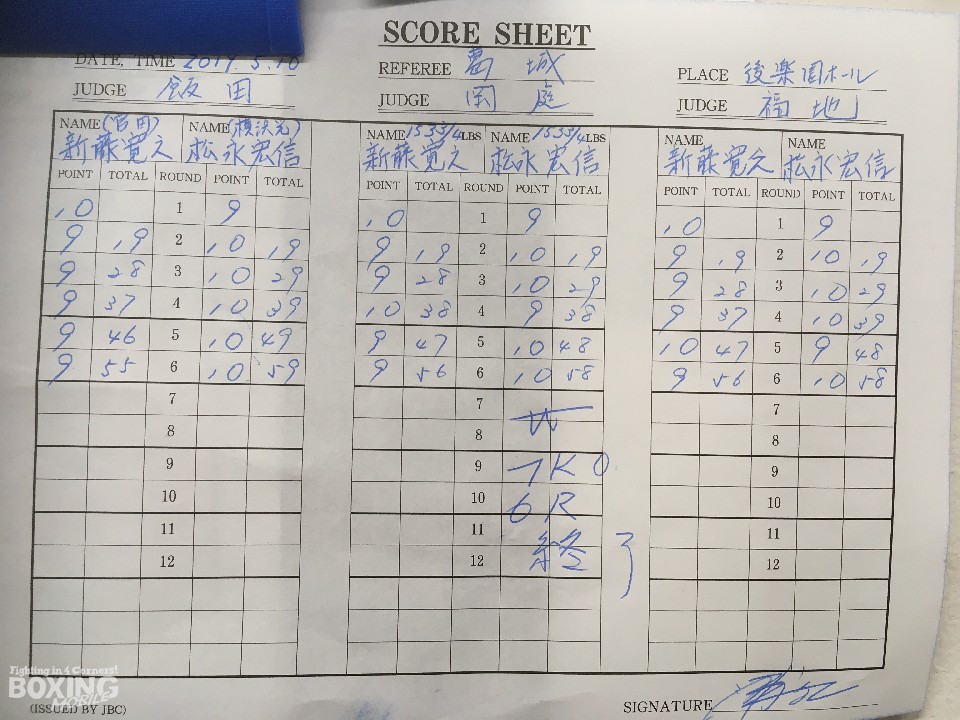 SCORE SHEET
DATE, TIME 2019.5.10 REFEREE 葛城 PLACE 後楽園ホール
JUDGE 飯田 JUDGE 岡庭 JUDGE 福地
NAME (宮田) NAME (横浜光) NAME 153 3/4 LBS NAME 153 3/4 LBS NAME NAME
新藤寛之 松永宏信 新藤寛之 松永宏信 新藤寛之 松永宏信
POINT TOTAL ROUND POINT TOTAL POINT TOTAL ROUND POINT TOTAL POINT TOTAL ROUND POINT TOTAL
10 1 9 10 1 9 10 1 9
9 19 2 10 19 9 19 2 10 19 9 19 2 10 19
9 28 3 10 29 9 28 3 10 29 9 28 3 10 29
9 37 4 10 39 10 38 4 9 38 9 37 4 10 39
9 46 5 10 49 9 47 5 10 48 10 47 5 9 48
9 55 6 10 59 9 56 6 10 58 9 56 6 10 58
7 7 W 7
8 8 8
9 9 TKO 9
10 10 6R 10
11 11 終了 11
12 12 12
Fighting in 4 Corners!
BOXING
MOBILE
(ISSUED BY JBC) SIGNATURE